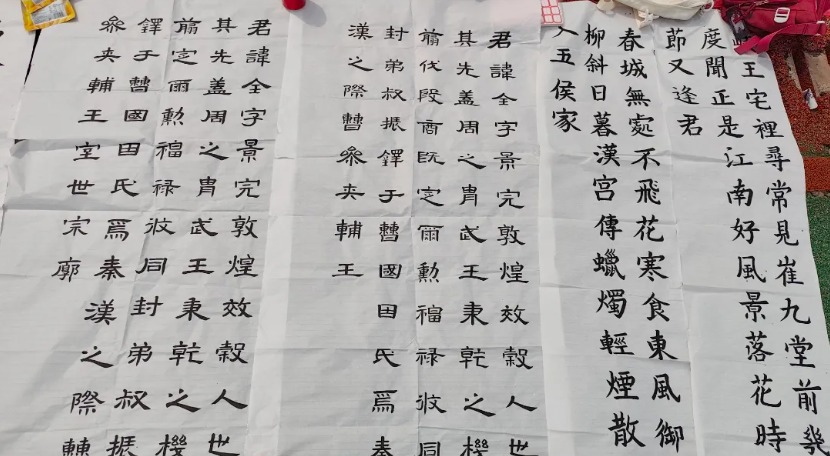 王宅裡尋常見崔九堂前幾
度聞正是江南好風景落花時
節又逢君
春城無處不飛花寒食東風御
柳斜日暮漢宮傳蠟燭輕煙散
入五侯家
君諱全字景完敦煌效穀人世
其先蓋周之胄武王秉乾之機
翦伐殷商既定爾勳福祿攸同
封弟叔振鐸于曹國因氏焉秦
漢之際曹參夾輔王
君諱全字景完敦煌效穀人世
其先蓋周之胄武王秉乾之機
翦定爾勳福祿攸同封弟叔振
鐸于曹國因氏焉秦漢之際
參夾輔王室世宗廓